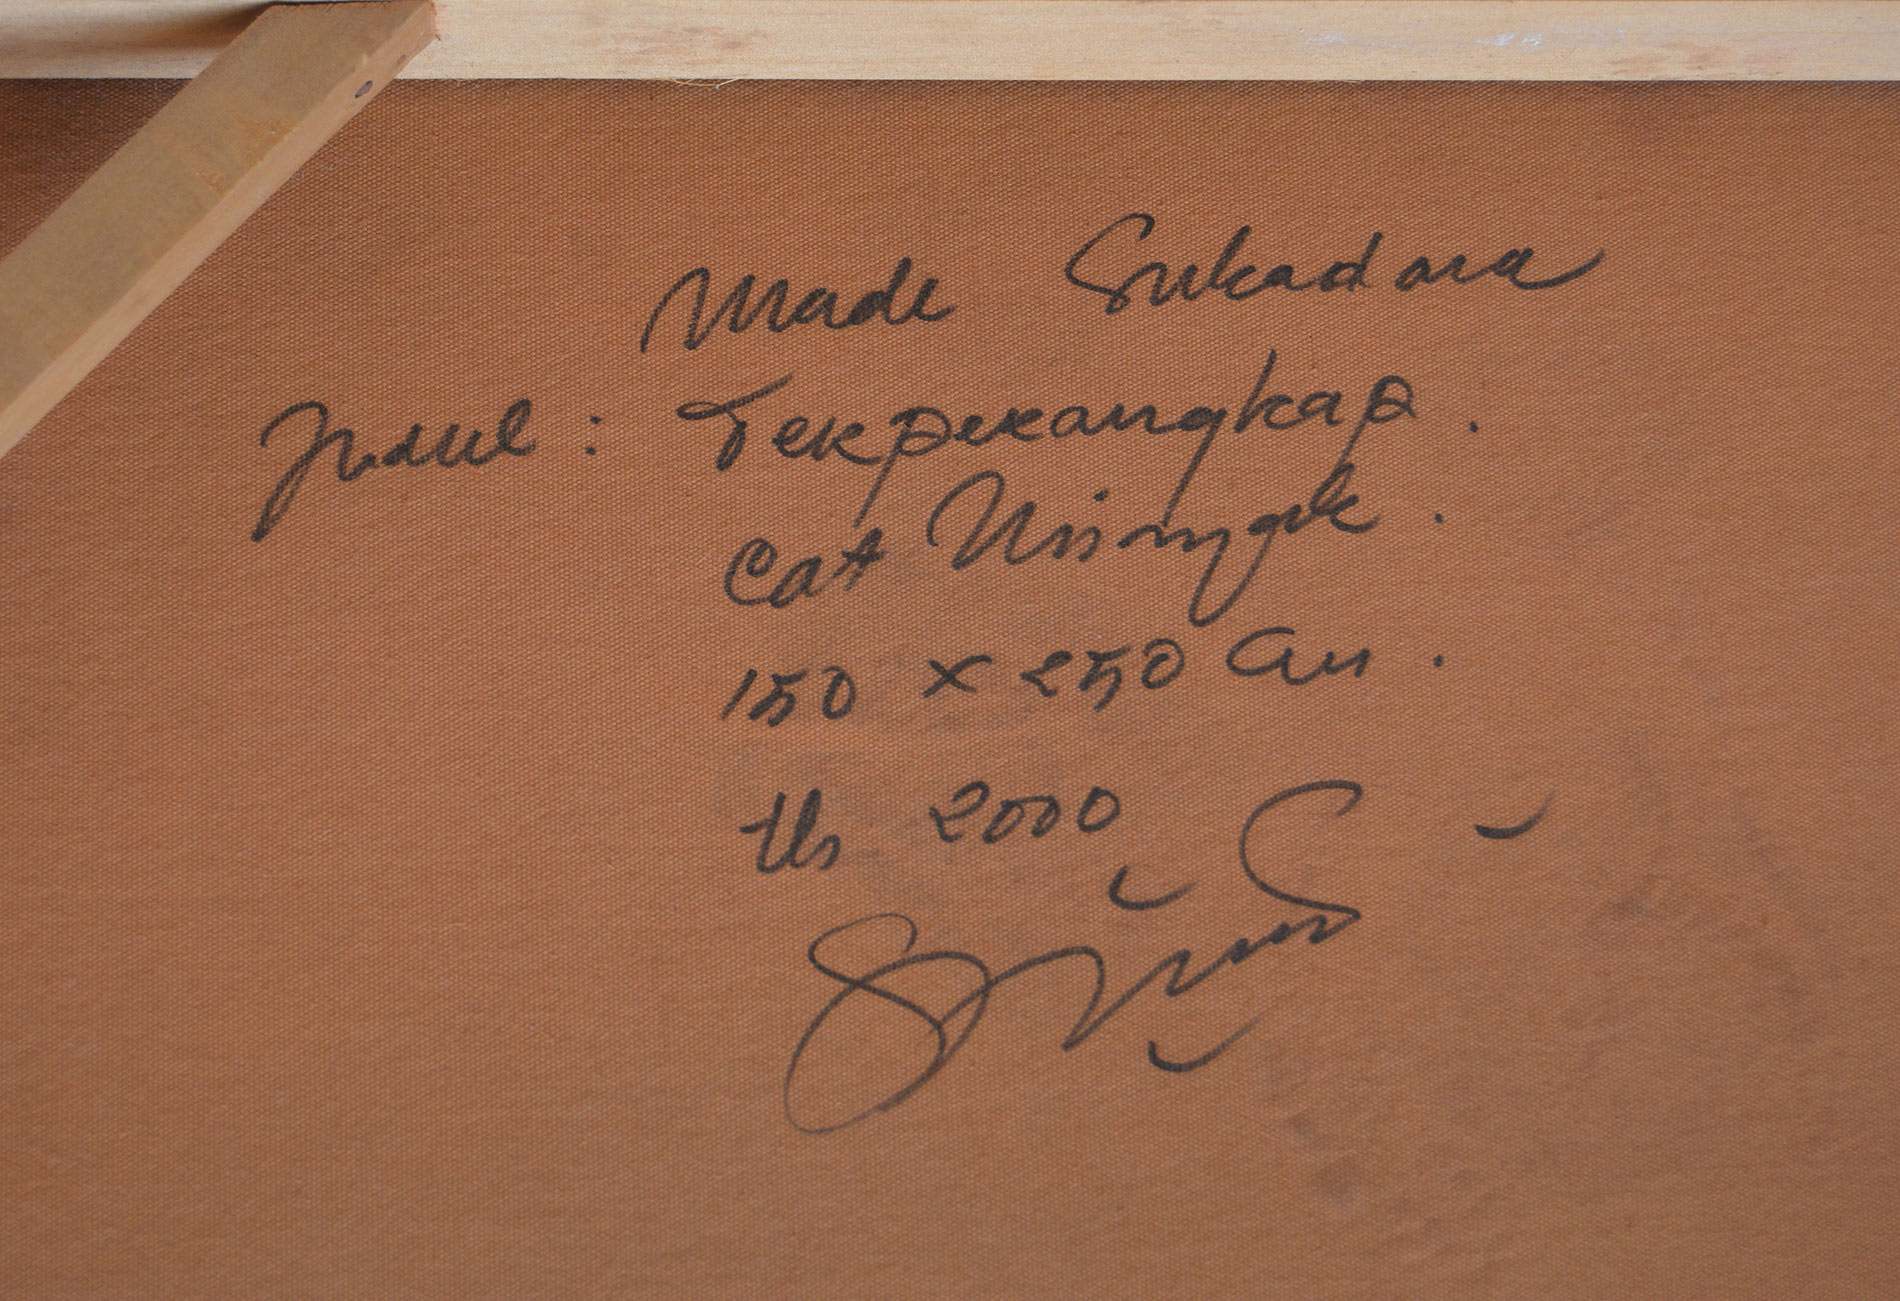 Made Sukadana
Judul : Terperangkap .
Cat Minyak .
150 x 250 cm .
th 2000